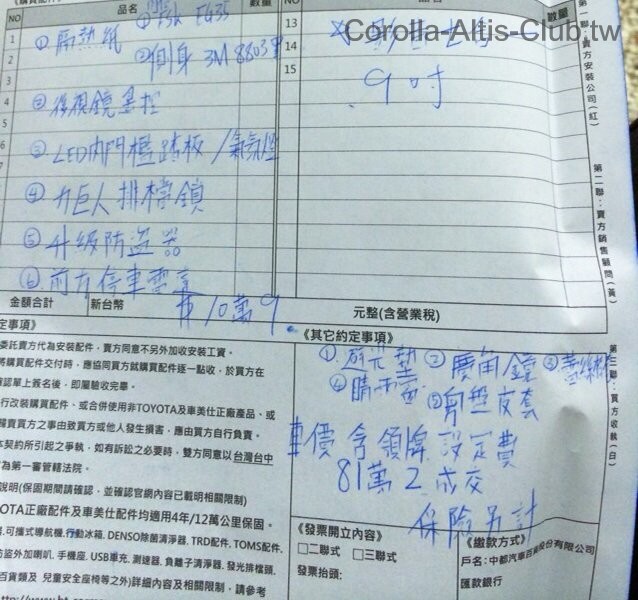 Corolla-Altis-Club.tw
品名
數量
NO
①隔熱紙
②側身 3M 8803
9吋
②後視鏡
③LED內門檻踏板/氣氛燈
④力巨人排檔鎖
⑤升級防盜器
⑥前方停車雷達
金額合計 新台幣 $10萬9. 元整(含營業稅)
第一聯:賣方安裝公司(紅)
第二聯:賣方銷售顧問(黃)
第三聯:買方收執(白)
定事項》
委託賣方代為安裝配件,賣方同意不另外加收安裝工資。
將購買配件交付時,應協同買方就購買配件逐一點收,於買方在
確認單上簽名後,即屬驗收完畢。
行改裝購買配件、或合併使用非TOYOTA及車美仕正廠產品、或
歸責買方之事由致買方或他人發生損害,應由買方自行負責。
本契約所引起之爭執,如有訴訟之必要時,雙方同意以台灣台中
為第一審管轄法院。
說明(保固期間請確認,並確認官網內容已載明相關限制)
OTA正廠配件及車美仕配件均適用4年/12萬公里保固。
可攜式導航機,行動冰箱,DENSO除菌清淨器,TRD配件,TOMS配件,
防盜外加喇叭,手機座,USB車充,測速器,負離子清淨器,發光排檔頭,
百貨類及 兒童安全座椅等之外)詳細內容及相關限制,請參考
《其它約定事項》
①遮光墊 ②廣角鏡
④晴雨窗 ⑤
車價含領牌設定費
81萬2成交
保險另計
《發票開立內容》
□二聯式 □三聯式
發票抬頭:
《繳款方式》
戶名:中部汽車百貨股份有限公司
匯款銀行